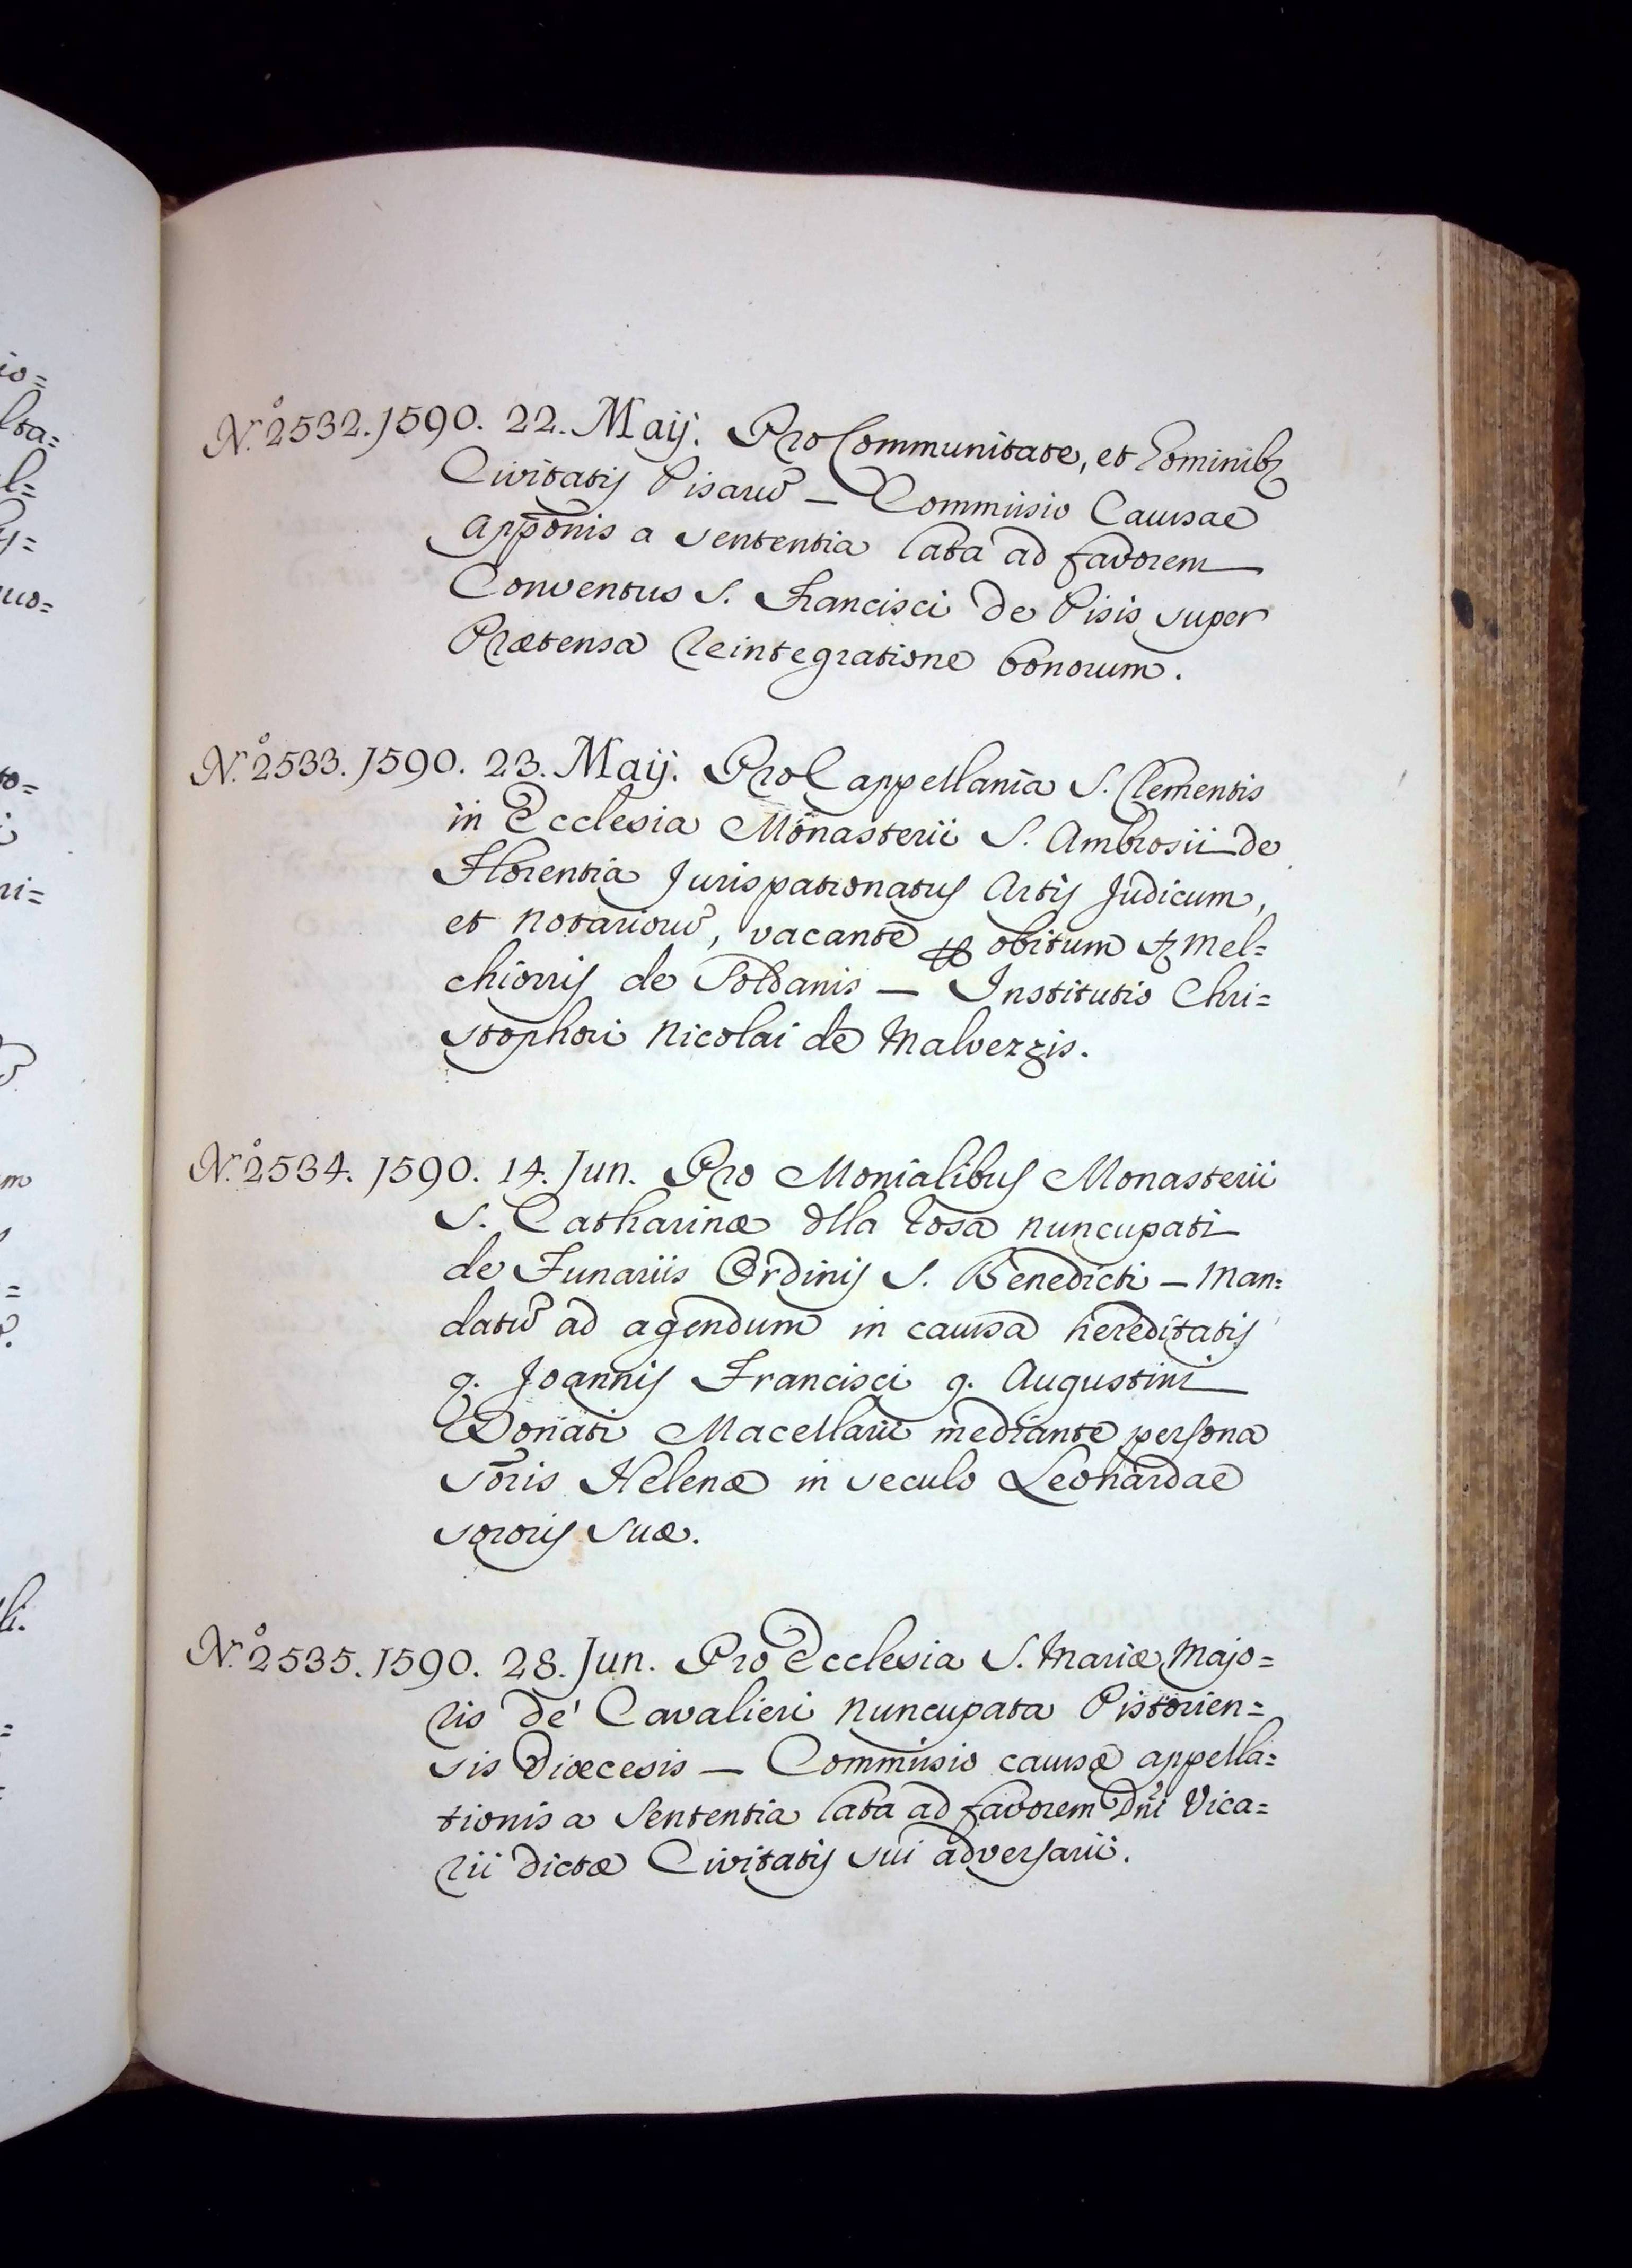 N.º 2532. 1590. 22. Maij. Pro Communitate, et Hominibꝫ
Civitatis Pisarũ — Commissio Causae
Appõnis a sententia lata ad favorem
Conventus S. Francisci de Pisis super
Prætensa Reintegratione bonorum.
N.º 2533. 1590. 23. Maij. Pro Cappellania S. Clementis
in Ecclesia Monasterii S. Ambrosii de
Florentia Jurispatronatus Artis Judicum,
et Notariorũ, vacante ꝑ obitum Mel=
chiorris de Soldanis — Institutio Chri=
stophori Nicolai de Malvezzis.
N.º 2534. 1590. 14. Jun. Pro Monialibus Monasterii
S. Catharinæ dlla Rosa nuncupati
de Funariis Ordinis S. Benedicti — Man=
datũ ad agendum in causa hereditatis
q. Joannis Francisci q. Augustini
Donati Macellarii mediante persona
Sõris Helenæ in seculo Leonardae
sororis suæ.
N.º 2535. 1590. 28. Jun. Pro Ecclesia S. Mariæ Majo=
ris de' Cavalieri nuncupata Pistorien=
sis Diœcesis — Commissio causæ appella=
tionis a Sententia lata ad favorem Dñi Vica=
rii dictæ Civitatis sui adversarii.